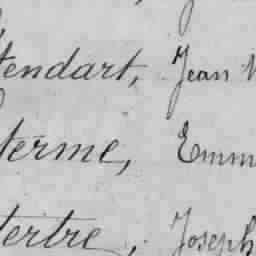 tendart, Jean
terme, Emm
tertre, Joseph